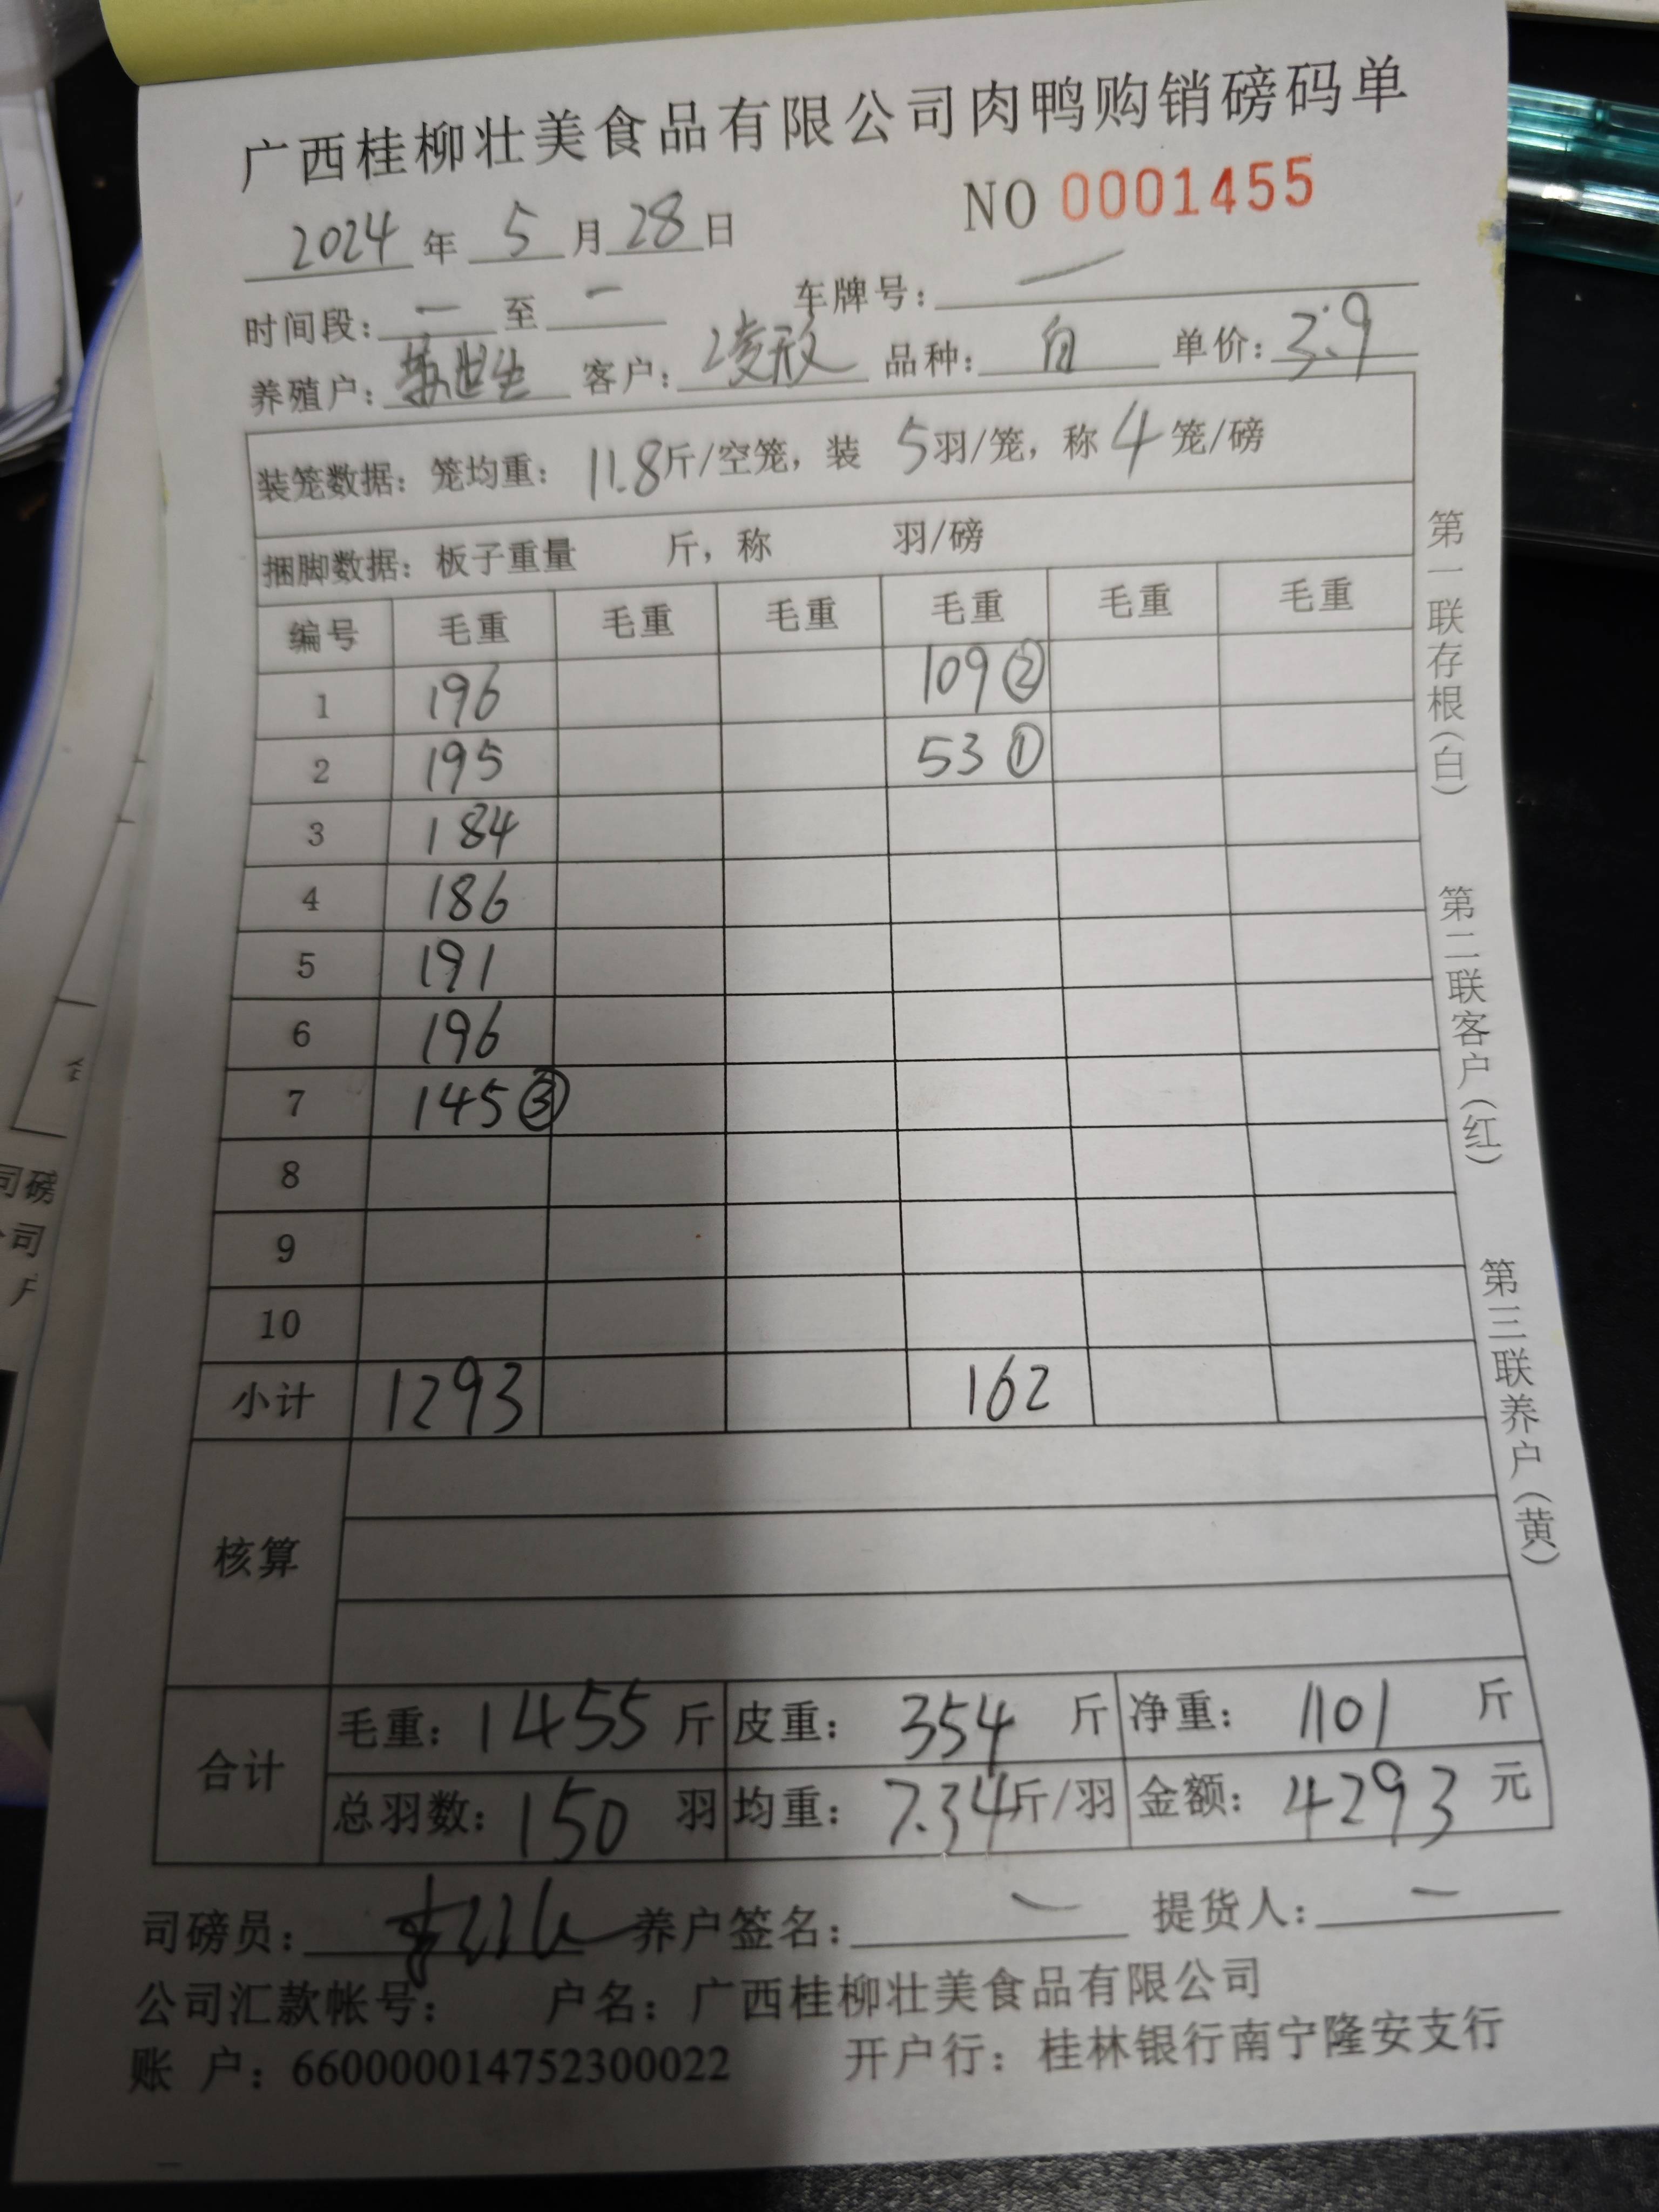 广西桂柳壮美食品有限公司肉鸭购销磅码单
2024年 5月28日 NO 0001455
时间段: 一 至 一 车牌号: 一
养殖户: 客户: 品种: 白 单价: 3.9
装笼数据: 笼均重: 11.8斤/空笼, 装 5羽/笼, 称4笼/磅
捆脚数据: 板子重量 斤, 称 羽/磅
编号 毛重 毛重 毛重 毛重 毛重 毛重
1 196 109②
2 195 53①
3 184
4 186
5 191
6 196
7 145③
8
9
10
小计 1293 162
核算
合计
毛重: 1455斤 皮重: 354斤 净重: 1101斤
总羽数: 150羽 均重: 7.34斤/羽 金额: 4293元
司磅员: 养户签名: 一 提货人: 一
公司汇款帐号: 户名: 广西桂柳壮美食品有限公司
账 户: 660000014752300022 开户行: 桂林银行南宁隆安支行
第一联存根(白)
第二联客户(红)
第三联养户(黄)
司磅
司
户